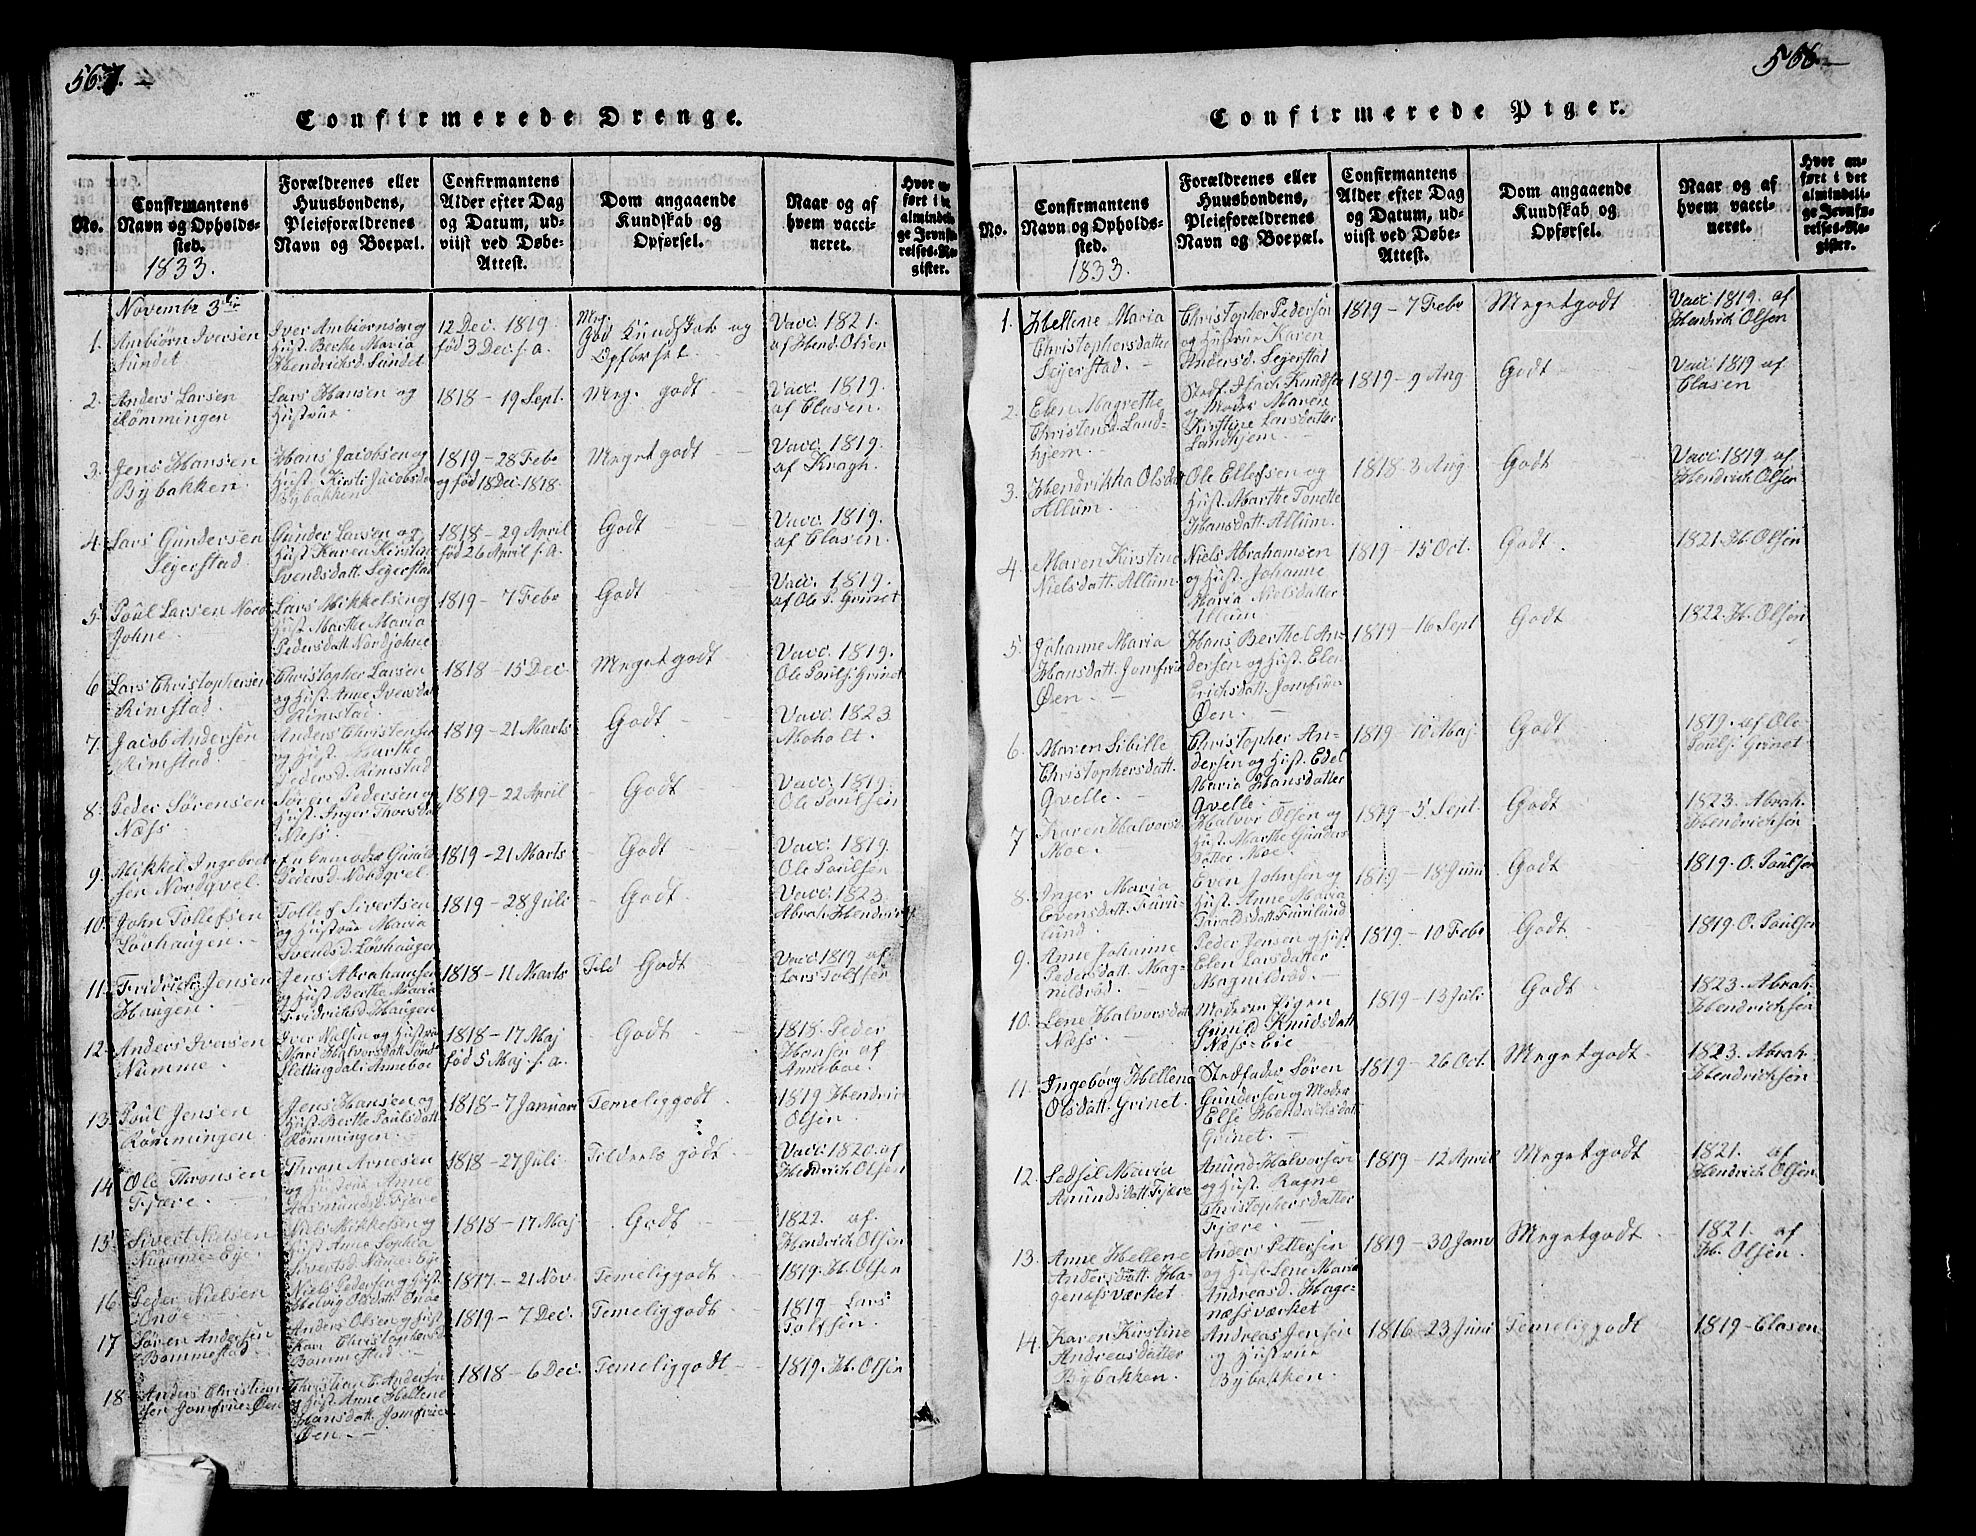 567. —
Confirmerede Drenge.
No.
Confirmantens
Navn og Opholds-
sted.
1833.
Forældrenes eller
Huusbondens,
Pleieforældrenes
Navn og Boepæl.
Confirmantens
Alder efter Dag
og Datum, ud-
viist ved Døbe-
Attest.
Dom angaaende
Kundskab og
Opførsel.
Naar og af
hvem vacci-
neret.
Hvor an-
ført i det
almindeli-
ge Jevnfø-
relses-Re-
gister.
Novembr 3die
1.
Anbiörn Iversen
Sundet
Iver Anbiörnsen og
Hust. Berthe Maria
Hendricksd. Sundet
12 Dec. 1819.
fød 3 Dec. s. a.
Mg.
God Kundskab og
Opførsel.
Vacc. 1821.
af Hend. Olsen
2.
Anders Larsen
Römmingen
Lars Hansen og
Hustrue
1818 - 19 Sept.
Meg. godt
Vacc. 1819.
af Clasen.
3.
Jens Hansen
Bybakken
Hans Jacobsen og
Hust. Kirsti Jacobsda
Bybakken
1819 - 28 Febr
og fød 18 Dec. 1818.
Meget godt
Vacc. 1819.
af Kragh.
4.
Lars Gundersen
Sejerstad
Gunder Larsen og
Hust. Karen Kirstine
Svendsdatt. Sejerstad
1818 - 29 April
fød 26 April s. a.
Godt
Vacc. 1819.
af Clasen.
5.
Poul Larsen Nord
Johne
Lars Mikkelsen og
Hust. Marthe Maria
Pedersdatt Nordjohne
1819 - 7 Febr
Godt
Vacc. 1819.
af Ole P. Grinet
6
Lars Christophersen
Rimstad
Christopher Larsen
og Hust. Anne Iversdat
Rimstad
1818 - 15 Dec
Meget godt
Vacc. 1819.
Ole Pouls. Grinet
7.
Jacob Andersen
Rimstad.
Anders Christensen
og Hust. Marthe
Pedersd. Rimstad
1819 - 21 Marts
Godt
Vacc. 1823
Moholt.
8.
Peder Sörensen
Næss.
Sören Pedersen og
Hust. Inger Thorsda
Næss
1819 - 22 April
Godt
Vacc. 1819.
Ole Poulsen
9.
Mikkel Ingebret-
sen Nordqvel.
Enkemoder Gunild
Pedersd. Nordqvel
1819 - 21 Marts
Godt
Vacc. 1819.
Ole Poulsen
10.
John Tollefsen
Lövhaugen.
Tollef Sivertsen
og Hustrue Maria
Svendsd. Lövhaugen
1819 - 28 Juli
Godt
Vacc. 1823
Abrah. Hendrics
11.
Fridrich Jensen
Haugen.
Jens Abrahamsen
og Hust. Berthe Maria
Fridricksd. Haugen
1818 - 11 Marts
Godt
Vacc. 1819 af
12.
Anders Iversen
Numme.
1818 - 17 Maj
fød 5 Maj s. a.
Godt
1818. Peder
Hansen af
Anneboe.
13.
Poul Jensen
Römmingen
Jens Hansen og
Hust. Berthe Poulsdatt
Römmingen.
1818 - 7 Januari
Temelig godt
1819 Hendric
Olsen
14.
Ole Thronsen
Fjære.
Thron Arnesen
og Hustrue Anne
Aasmundsd. Fjære
1818 - 27 Juli
Tildeels godt
Vacc. 1820. af
Hendrich Olsen
15
Sivert Nielsen
Numme-Eje.
Niels Mikkelsen og
Hust. Anne Sophia
Sivertsd. Nume-Eje
1818 - 17 Maj
Godt
1822. af.
Hendrich Olsen
16
Peder Nielsen
Niels Pedersen og Hust.
Helvig Olsdatt.
1817. - 21 Nov.
Temelig godt
1819. H. Olsen
17
Sören Andersen
Bommestad.
Anders Olsen og Hust
Kari Christophersd
Bommestad.
1819 - 7 Dec.
Temelig godt
1819 Lars
18
Anders Christian-
sen Jomfrue-Øen
Christian C. Andersen
og Hust. Anne Hellene
Hansdatt. Jomfrue
Øen.
1818 - 6 Dec.
Temelig godt
1819. H. Olsen
566 —
Confirmerede Piger.
No.
Confirmantens
Navn og Opholds-
sted.
1833.
Forældrenes eller
Huusbondens,
Pleieforældrenes
Navn og Boepæl.
Confirmantens
Alder efter Dag
og Datum, ud-
viist ved Døbe-
Attest.
Dom angaaende
Kundskab og
Opførsel.
Naar og af
hvem vacci-
neret.
Hvor an-
ført i det
almindeli-
ge Jevnfø-
relses-Re-
gister.
1.
Hellene Maria
Christophersdatter
Sejerstad.
Christopher Pedersen
og Hustrue Karen
Andersd. Sejerstad
1819 - 7 Febr
Meget godt
Vacc 1819. af
Hendrich Olsen
2.
Elen Magrethe
Christensd. Land-
hjem.
Stedf. Isach Knudsen
og Moder Maren
Kirstine Larsdatter
Landhjem.
1819 - 9 Aug
Godt
Vacc 1819 af
Clasen
3.
Hendrikka Olsda
Allum.
Ole Ellefsen og
Hust. Marthe Tonette
Hansdatt. Allum.
1818 3 Aug.
Godt
Vacc 1819 af
Hendrich Olsen
4.
Maren Kirstine
Nielsdatt. Allum.
Niels Abrahamsen
og Hust. Johanne
Maria Nielsdatter
Allum
1819 - 15 Oct.
Godt.
1821. H. Olsen
5.
Johanne Maria
Hansdatt. Jomfrue
Øen.
Hans Berthel An-
dersen og Hust. Elen
Erichsdatt. Jomfrue
Øen.
1819 - 16 Sept
Godt
1822. H. Olsen
6.
Maren Sibille
Christophersdatt.
Qvelle.
Christopher An-
dersen og Hust. Edel
Maria Hansdatter
Qvelle.
1819 - 10 Maj.
Godt
1819. af Ole
Pouls. Grinet
7
Karen Halvorsd.
Moe.
Halvor Olsen og
Hust. Marthe Gunders
datter Moe.
1819 - 5. Sept
Godt
1823. Abrah.
Hendrichsen
8.
Inger Maria
Evensdatt. Furu-
lund.
Even Johnsen og
Hust. Anne Maria
Taraldsdatt. Furulund
1819 - 18 Juni
Godt
1819. O. Poulsen
9.
Anne Johanne
Pedersdatt. Mag-
nildröd.
Peder Jensen og Hust
Elen Larsdatter
Magnildröd.
1819 - 10 Febr
Godt
1819. O. Poulsen
10.
Lene Halvorsdatt
Næss.
Moderen Pigen
Gunild Knudsdatt
Næss-Eie
1819 - 13 Juli
Godt
1823. Abrah.
Hendrichsen
11.
Ingeborg Hellene
Olsdatt. Grinet.
Stedfader Sören
Gundersen og Moder
Else Hendrichsdatt.
Grinet.
1819 - 26 Oct.
Meget godt
1823. Abrah
Hendrichsen
12.
Sedsel Maria
Amundsdatt. Fjære
Amund Halvorsen
og Hust. Ragne
Christophersdatter
Fjære.
1819 - 12 April
Meget godt
1821. af
Hendrich Olsen
13.
Anne Hellene
Andersdatt. Ha-
genæssværket
Anders Pettersen
og Hust. Lene Maria
Andreasd. Hage-
næssværket
1819 - 30 Janv
Meget godt
1821. af
H. Olsen.
14.
Karen Kirstine
Andreasdatter
Bybakken.
Andreas Jensen
og Hustrue
Bybakken.
1816 - 23 Juni
Temelig godt
1819 - Clasen